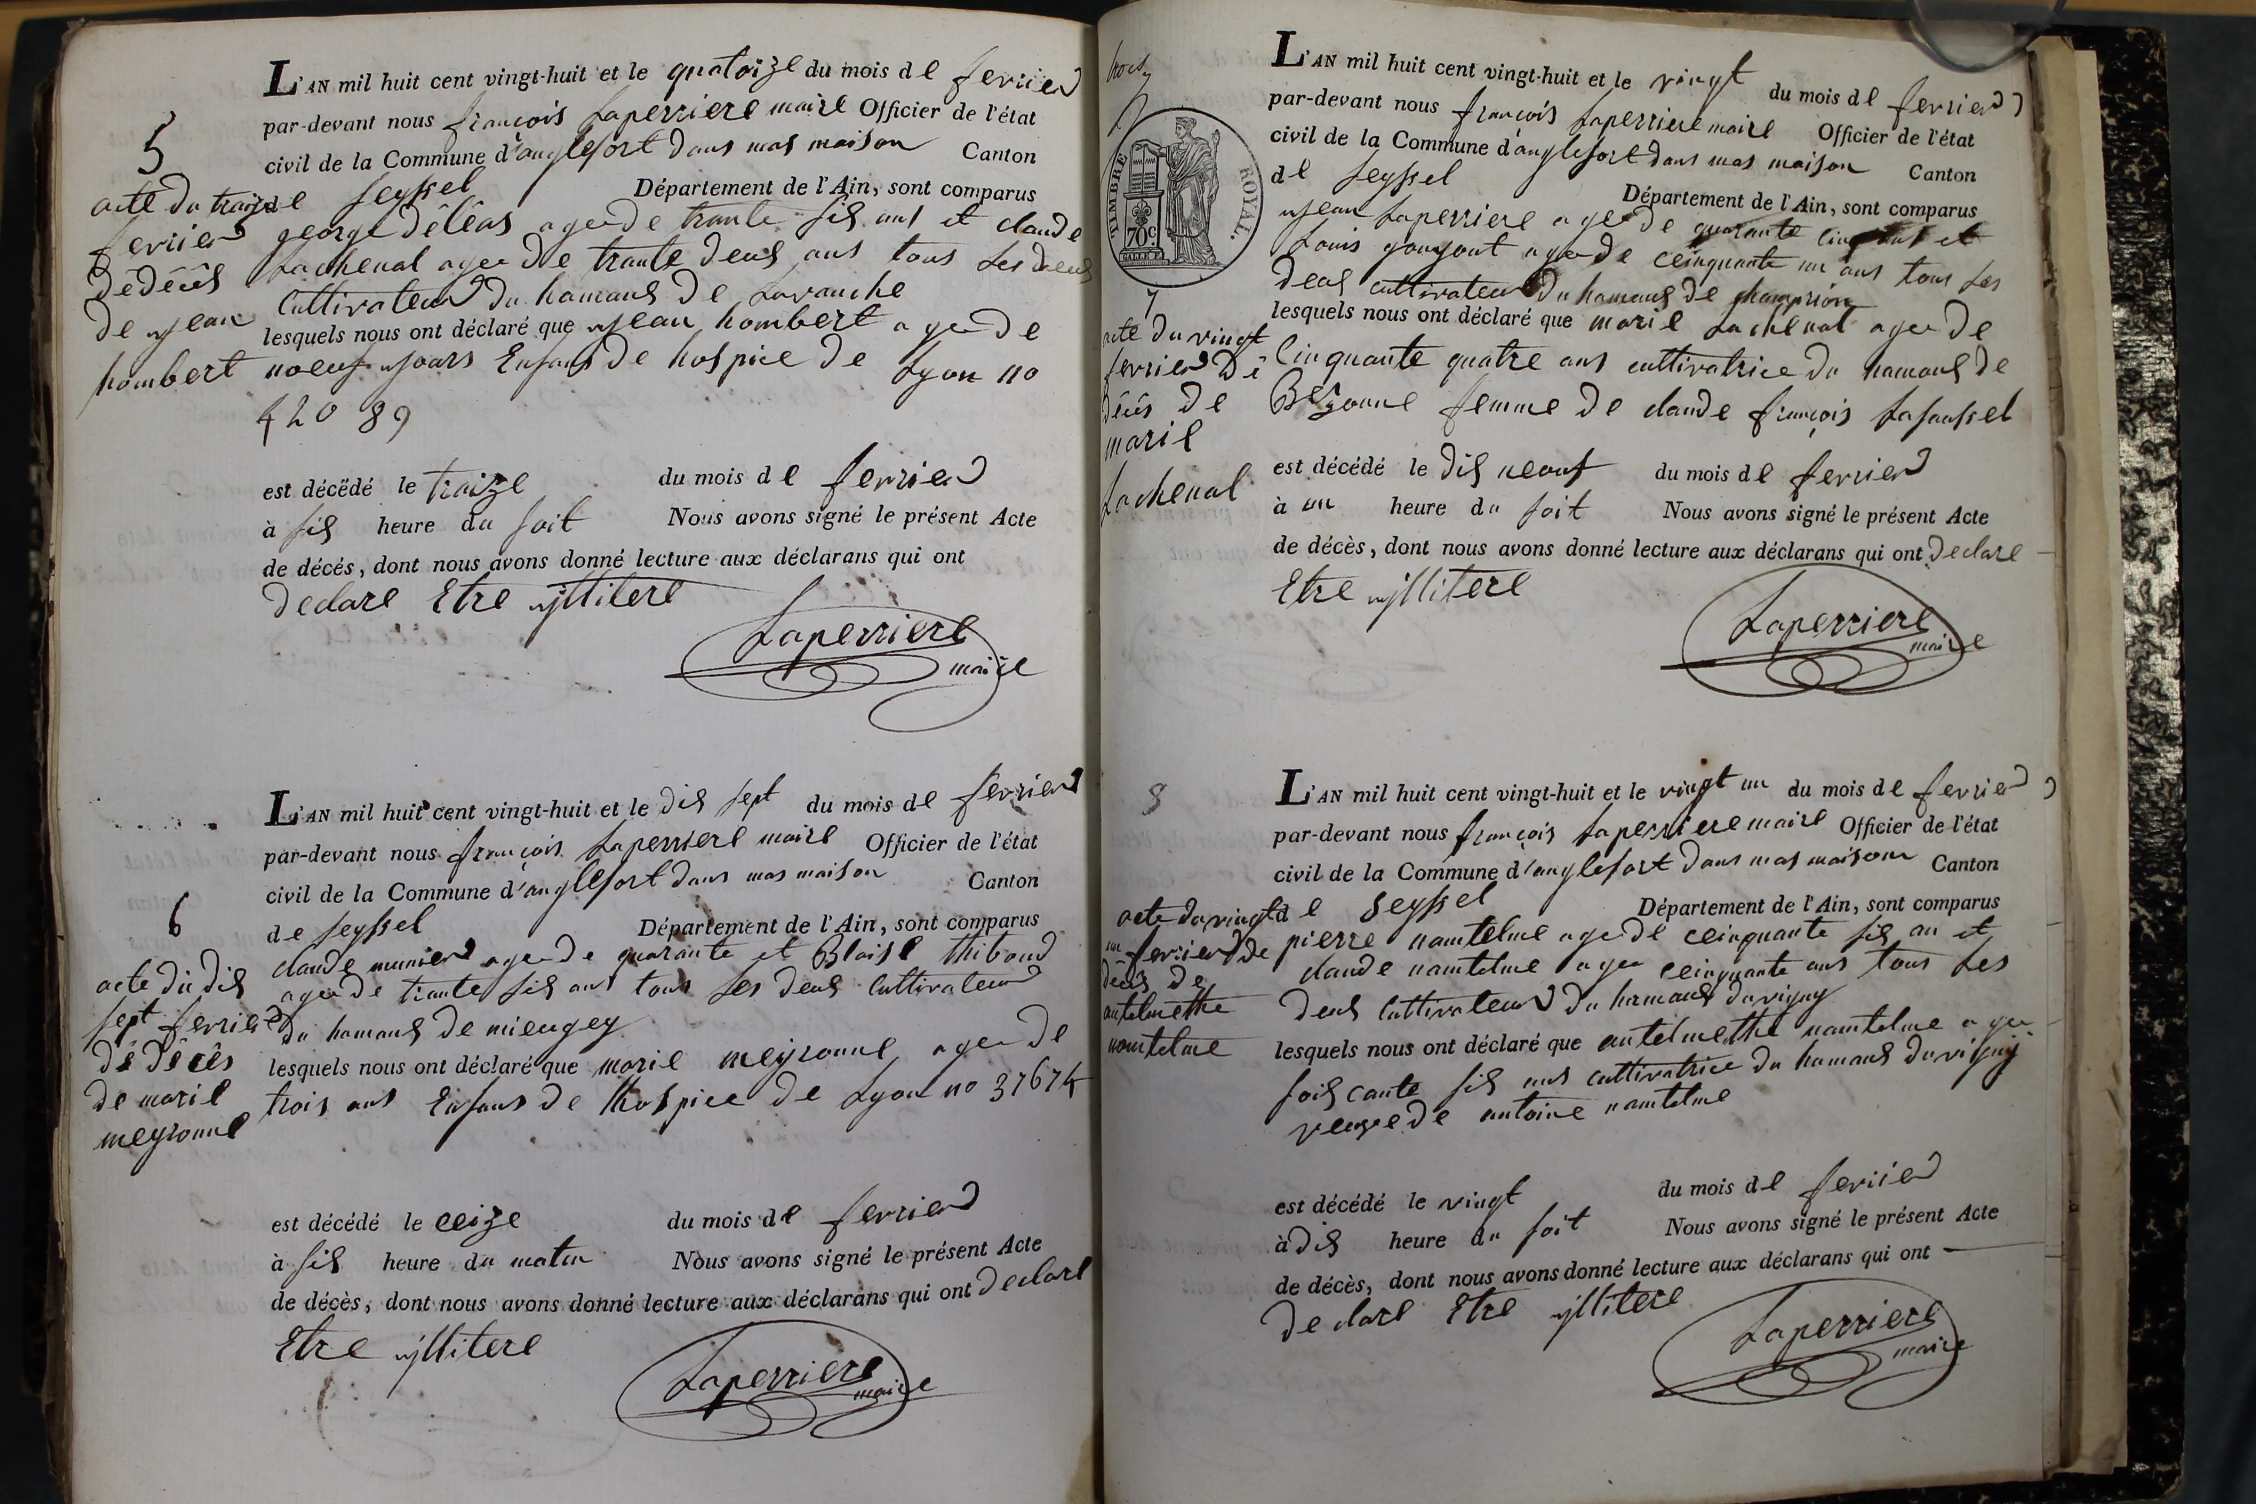 5
acte du traize
ferrier
dédécês
de jean
hombert
L'AN mil huit cent vingt-huit et le quatoize du mois de ferrier
par-devant nous françois Laperriere maire Officier de l'état
civil de la Commune d'anglefort dans mas maison Canton
de seyssel Département de l'Ain, sont comparus
george délêas agee de trante sis ans et claude
Lachenal agee de trante deus ans tous Les deus
Cultivateur du hamaus de Lavanche
lesquels nous ont déclaré que jean hombert agee de
noeuf jours Enfans de hospice de Lyon no
42089
est décédé le traize du mois de ferrier
à sis heure du soit Nous avons signé le présent Acte
de décés, dont nous avons donné lecture aux déclarans qui ont
declare Etre jllitere
Laperriere
maire
6
acte du dis
sept ferrier
dé décês
de marie
meyronne
L'AN mil huit cent vingt-huit et le dis sept du mois de ferrier
par-devant nous françois Laperriere maire Officier de l'état
civil de la Commune d'anglefort dans mas maison Canton
de seyssel Département de l'Ain, sont comparus
claude munier agee de quarante et Blaise thiboud
agee de trante sis ans tous Les deus Cultivateur
du hamaus de mieugey
lesquels nous ont déclaré que marie meyronne agee de
trois ans Enfans de Lhospice de Lyon no 37674
est décédé le ceize du mois de ferrier
à sis heure du matin Nous avons signé le présent Acte
de décès, dont nous avons donné lecture aux déclarans qui ont declare
Etre jllitere
Laperriere
maire
trois
TIMBRE ROYAL.
70c
7
acte du vingt
ferrier dé
décês de
marie
Lachenal
L'AN mil huit cent vingt-huit et le vingt du mois de ferrier
par-devant nous françois Laperriere maire Officier de l'état
civil de la Commune d'anglefort dans mas maison Canton
de seyssel Département de l'Ain, sont comparus
jean Laperriere agee de quarante cinq ans et
Louis goujout agee de ceinquante un ans tous Les
deus cultivateur du hamaus de champrion
lesquels nous ont déclaré que marie Lachenal agee de
Cinquante quatre ans cultivatrice du hamaus de
Bezonne femme de claude françois Lafaussel
est décédé le dis neouf du mois de ferrier
à un heure du soit Nous avons signé le présent Acte
de décès, dont nous avons donné lecture aux déclarans qui ont declare
Etre jllitere
Laperriere
maire
8
acte du vingt
un ferrier de
décês de
antelmethe
namtelme
L'AN mil huit cent vingt-huit et le vingt un du mois de ferrier
par-devant nous françois Laperriere maire Officier de l'état
civil de la Commune d'anglefort dans mas maison Canton
de seyssel Département de l'Ain, sont comparus
pierre namtelme agee de ceinquante sis an et
claude namtelme agee ceinquante ans tous Les
deus Cultivateur du hamaus du vigny
lesquels nous ont déclaré que antelmethe namtelme agee
sois cante sis ans cultivatrice du hamaus du vigny
veuve de antoine namtelme
est décédé le vingt du mois de ferrier
à dis heure du soit Nous avons signé le présent Acte
de décès, dont nous avons donné lecture aux déclarans qui ont
declare Etre jllitere
Laperriere
maire